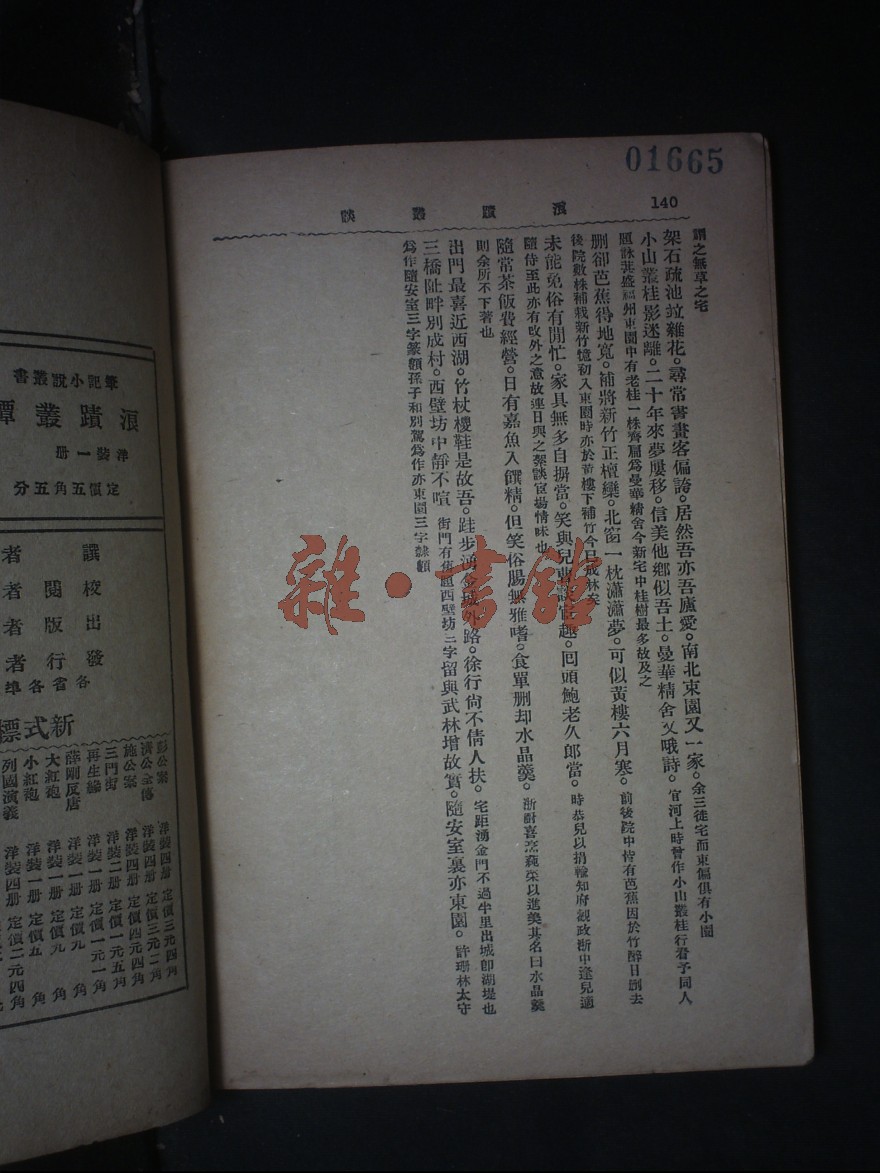 01665
140
浪蹟叢談
謂之無草之宅
架石疏池竝雜花。尋常書畫客偏誇。居然吾亦吾廬愛。南北東園又一家。余三徙宅而東偏俱有小園
小山叢桂影迷離。二十年來夢屢移。信美他鄉似吾土。曼華精舍又哦詩。官河上時曾作小山叢桂行看予同人
題詠甚盛福州東園中有老桂一株齊扁為曼華精舍今新宅中桂樹最多故及之
刪卻芭蕉得地寬。補將新竹正檀欒。北窗一枕瀟瀟夢。可似黃樓六月寒。前後院中皆有芭蕉因於竹醉日刪去
後院數株補栽新竹憶初入東園時亦於黃樓下補竹今已成林矣
未能免俗有閒忙。家具無多自摒當。笑與兒曹談官趣。囘頭鮑老久郎當。時恭兒以捐輸知府觀政浙中逢兒適
隨侍至此亦有改外之意故連日與之絮談宦場情味也
隨常茶飯費經營。日有嘉魚入饌精。但笑俗腸無雅嗜。食單刪却水晶羹。浙廚喜烹蒓菜以進美其名曰水晶羹
則余所不下著也
出門最喜近西湖。竹杖椶鞋是故吾。跬步湧金城外路。徐行尙不倩人扶。宅距湧金門不過半里出城卽湖堤也
三橋阯畔別成村。西壁坊中靜不喧。街門有舊題西壁坊三字留與武林增故實。隨安室裏亦東園。許珊林太守
爲作隨安室三字篆額孫子和別駕爲作亦東園三字隸額
雜·書館
筆記小說叢書
浪蹟叢譚
洋裝一册
定價五角五分
譔者
校閱者
出版者
發行者
各省各埠
新式標
彭公案 洋裝四册 定價三元四角
濟公全傳 洋裝四册 定價三元二角
施公案 洋裝四册 定價四元四角
三門街 洋裝二册 定價一元五角
再生緣 洋裝一册 定價一元一角
薛剛反唐 洋裝一册 定價九角
大紅袍 洋裝一册 定價九角
小紅袍 洋裝一册 定價五角
列國演義 洋裝四册 定價二元四角